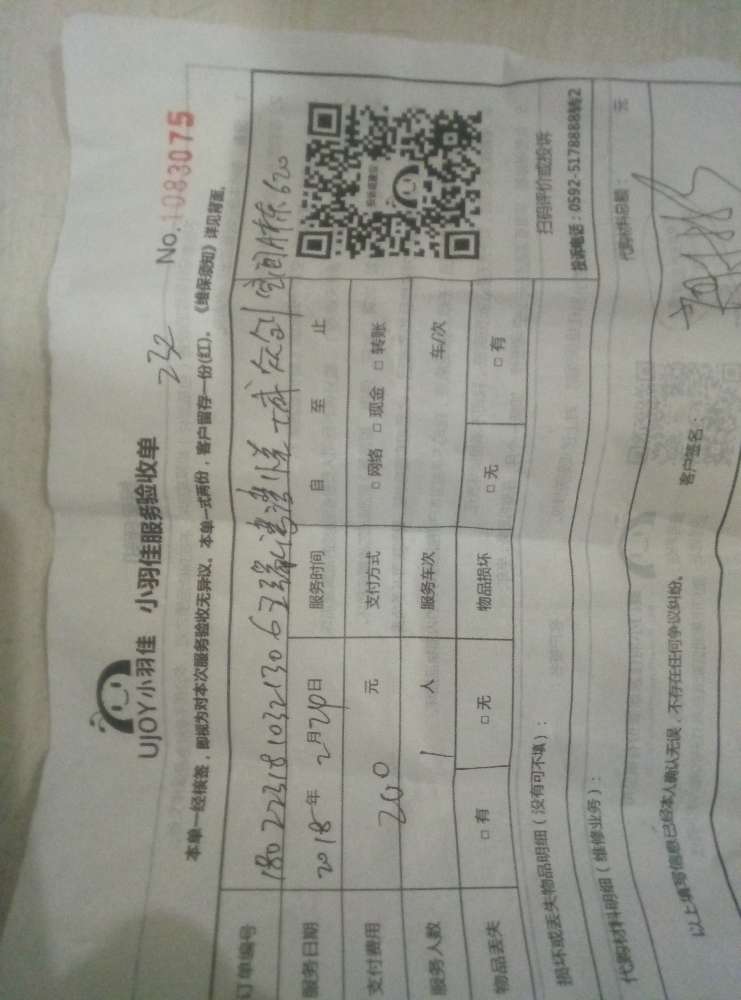 UJOY小羽佳 小羽佳服务验收单
232
No.1083075
本单一经核签，即视为对本次服务验收无异议。本单一式两份，客户留存一份(红)。《维保须知》详见背面。
订单编号 180223181032130671 悦 众创空间A栋620
服务日期 2018年2月24日 服务时间 自 至 止
支付费用 200元 支付方式 □网络 □现金 □转账
服务人数 1人 服务车次 车/次
物品丢失 □有 □无 物品损坏 □无 □有
扫码评价或投诉
投诉电话：0592-5178888转2
损坏或丢失物品明细（没有可不填）：
代购材料明细（维修业务）： 代购材料总额： 元
以上填写信息已经本人确认无误，不存在任何争议纠纷。 客户签名：